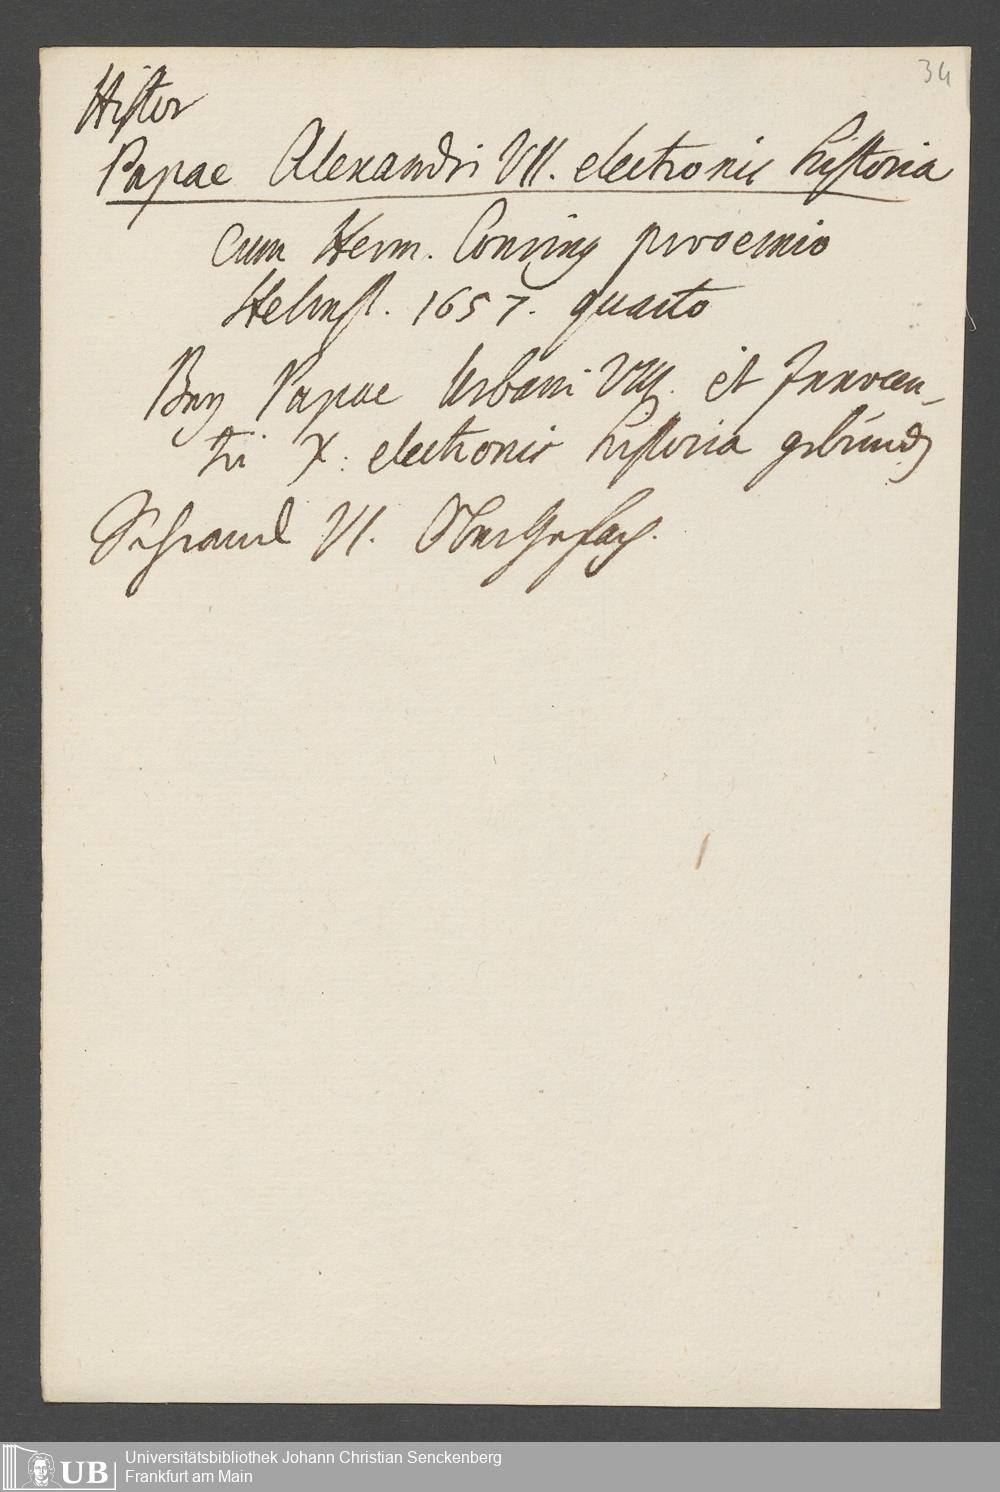 34
Histor
Papae Alexandri VII. electionis historia
cum Herm. Conring prooemio
Helmst. 1657. quarto
Bey Papae Urbani VIII. et Innocen-
tii X. electionis historia gebunden
Schranck VI. Ober Gefach.
UB
Universitätsbibliothek Johann Christian Senckenberg
Frankfurt am Main